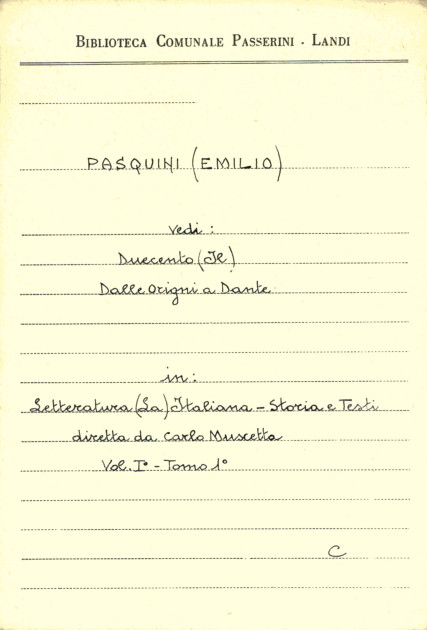 BIBLIOTECA COMUNALE PASSERINI - LANDI
PASQUINI (EMILIO)
vedi :
Duecento (Il)
Dalle Origni a Dante
in :
Letteratura (La) Italiana - Storia e Testi
diretta da Carlo Muscetta
Vol. I° - Tomo 1°
C